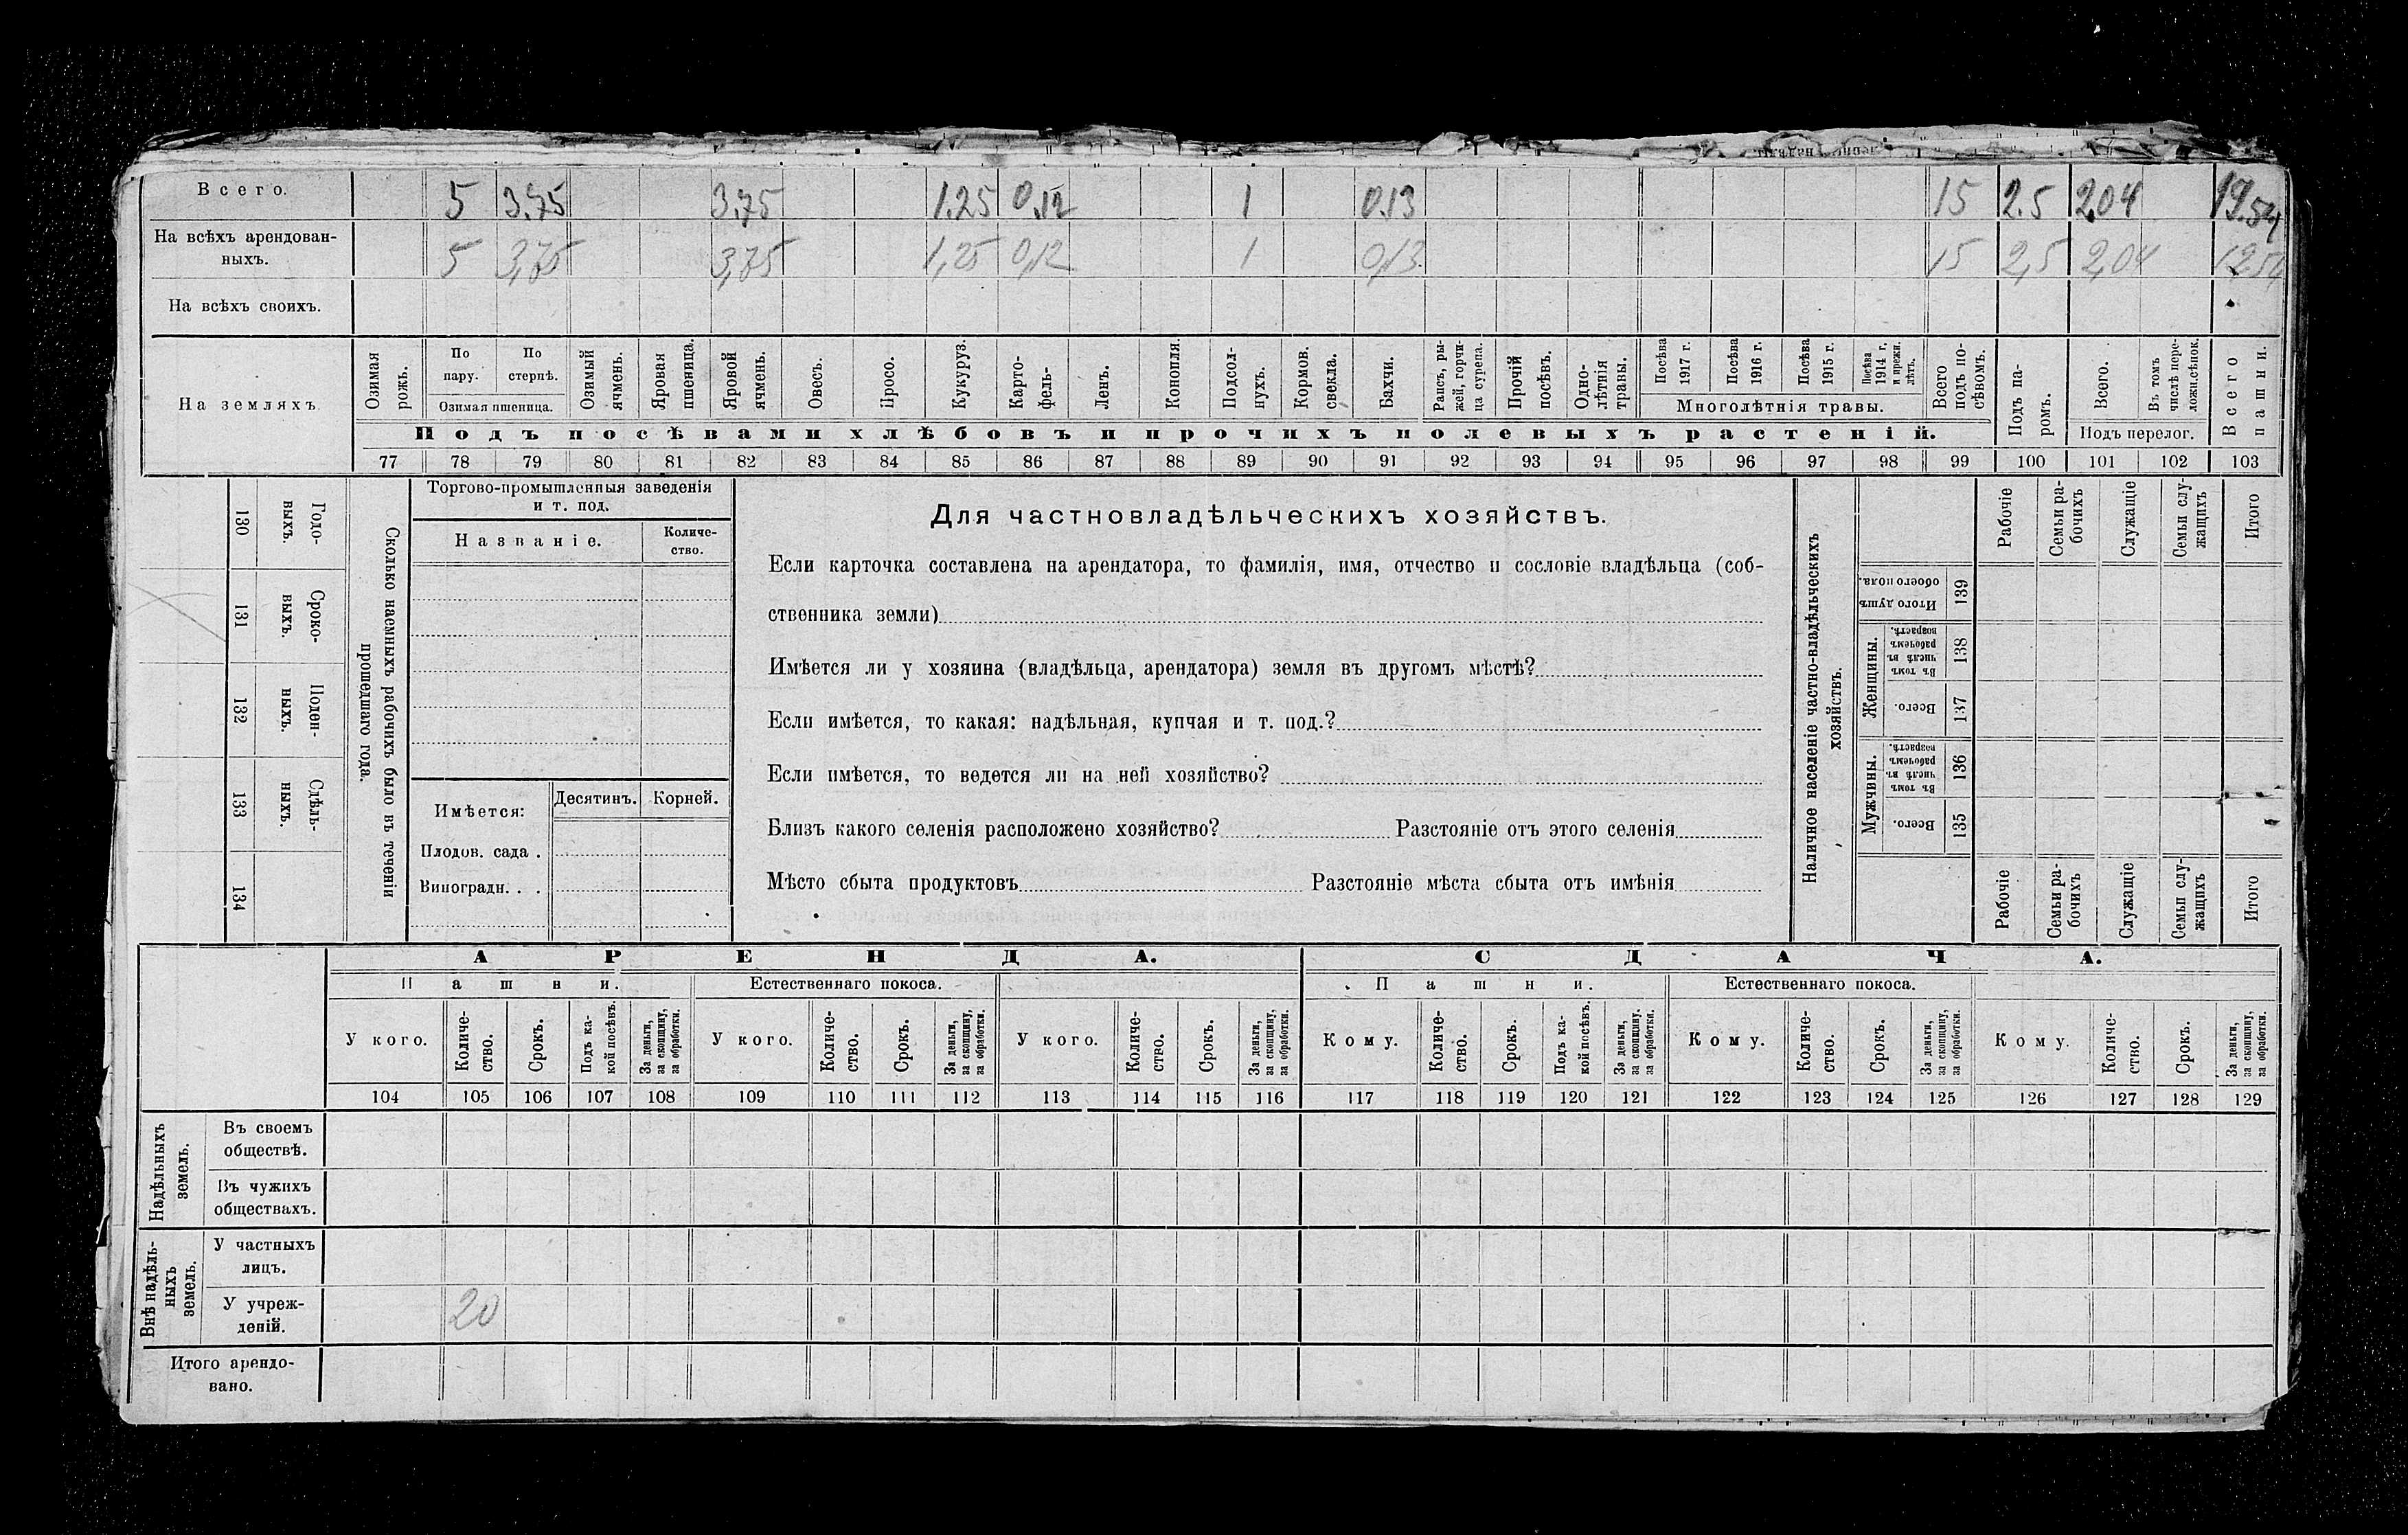 Всего. 5 3.75 3.75 1.25 0.12 1 0.13 15 2.5 2.04 19.54
На всѣхъ арендован-
ныхъ. 5 3,75 3,75 1,25 0,12 1 0,13 15 2,5 2,04
На всѣхъ своихъ.
На земляхъ
Озимая рожь.
По пару.
По стернѣ.
Озимая пшеница.
Озимый ячмень.
Яровая пшеница.
Яровой ячмень.
Овесъ.
Просо.
Кукуруз.
Карто-
фель-
Ленъ.
Конопля.
Подсол-
нухъ.
Кормов. свекла.
Бахчи.
Рапсъ, ры-
жей, горчи-
ца сурепа.
Прочій посѣвъ.
Одно-
лѣтнія травы.
Посѣва 1917 г.
Посѣва 1916 г.
Посѣва 1915 г.
Посѣва 1914 г. и прежн. лѣтъ.
Многолѣтнія травы.
Всего подъ по-
сѣвомъ.
Подъ па-
ромъ.
Всего.
Въ томъ числѣ пере-
ложн.сѣнок.
Подъ перелог.
Всего пашни.
Подъ посѣвами хлѣбовъ и прочихъ полевыхъ растеній.
77 78 79 80 81 82 83 84 85 86 87 88 89 90 91 92 93 94 95 96 97 98 99 100 101 102 103
130 Годо-
выхъ.
131 Сроко-
выхъ.
132 Поден-
ныхъ.
133 Сдѣль-
ныхъ.
134
Сколько наемныхъ рабочихъ было въ теченіи
прошедшаго года.
Торгово-промышленныя заведенія
и т. под.
Названіе.
Количе-
ство.
Имѣется:
Десятинъ. Корней.
Плодов. сада .
Виноградн. . .
Для частновладѣльческихъ хозяйствъ.
Если карточка составлена на арендатора, то фамилія, имя, отчество и сословіе владѣльца (соб-
ственника земли)
Имѣется ли у хозяина (владѣльца, арендатора) земля въ другомъ мѣстѣ?
Если имѣется, то какая: надѣльная, купчая и т. под.?
Если имѣется, то ведется ли на ней хозяйство?
Близъ какого селенія расположено хозяйство? Разстояніе отъ этого селенія
Мѣсто сбыта продуктовъ Разстояніе мѣста сбыта отъ имѣнія
Наличное населеніе частно-владѣльческихъ
хозяйствъ.
Рабочіе
Семьи ра-
бочихъ
Служащіе
Семьи слу-
жащихъ
Итого
Итого душъ обоего пола. 139
Женщины.
Въ томъ числѣ въ рабочемъ возрастѣ. 138
Всего. 137
Мужчины.
Въ томъ числѣ въ рабочемъ возрастѣ. 136
Всего. 135
Рабочіе
Семьи ра-
бочихъ
Служащіе
Семьи слу-
жащихъ
Итого
АРЕНДА. СДАЧА.
Пашни. Естественнаго покоса. Пашни. Естественнаго покоса.
У кого.
Количе-
ство.
Срокъ.
Подъ ка-
кой посѣвъ.
За деньги,
за скопщину,
за обработки.
У кого.
Количе-
ство.
Срокъ.
За деньги,
за скопщину,
за обработки.
У кого.
Количе-
ство.
Срокъ.
За деньги,
за скопщину,
за обработки.
Кому.
Количе-
ство.
Срокъ.
Подъ ка-
кой посѣвъ.
За деньги,
за скопщину.
за обработки.
Кому.
Количе-
ство.
Срокъ.
За деньги,
за скопщину,
за обработки.
Кому.
Количе-
ство.
Срокъ.
За деньги,
за скопщину,
за обработки.
104 105 106 107 108 109 110 111 112 113 114 115 116 117 118 119 120 121 122 123 124 125 126 127 128 129
Надѣльныхъ
земель.
Въ своемъ
обществѣ.
Въ чужихъ
обществахъ.
Внѣ надѣль-
ныхъ
земель.
У частныхъ
лицъ.
У учреж-
деній. 20
Итого арендо-
вано.